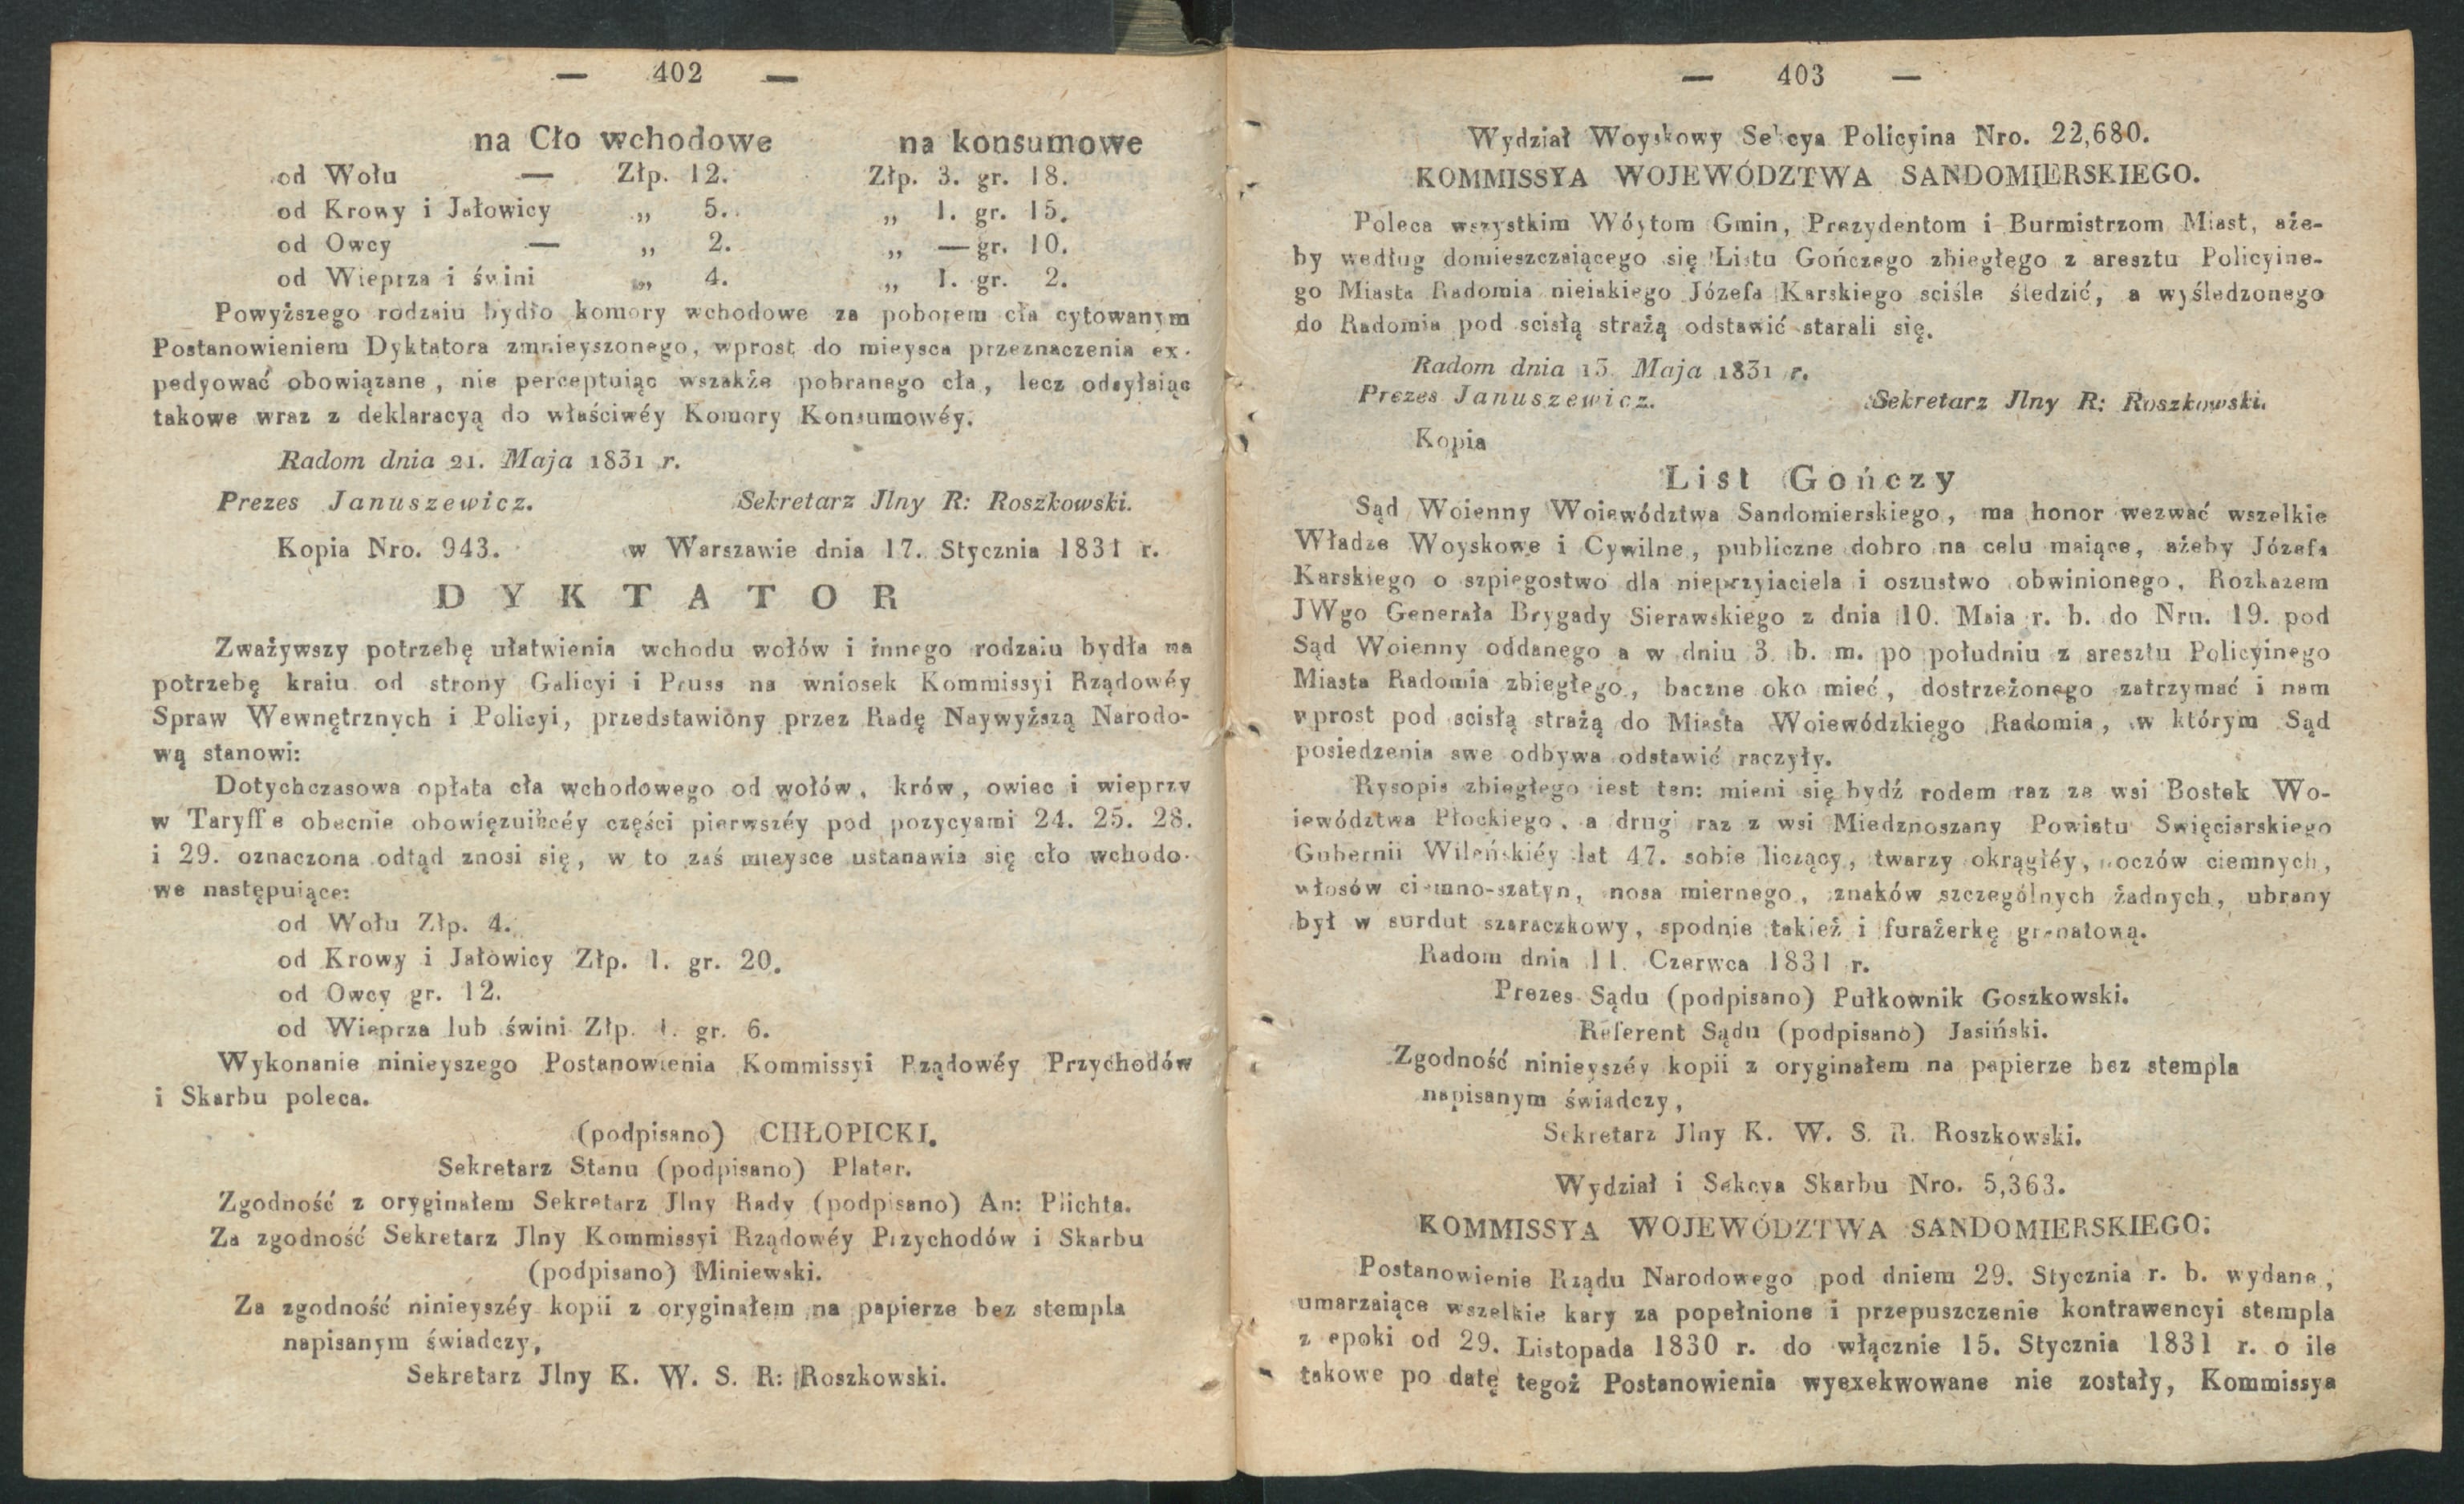 — 402 —
na Cło wchodowe na konsumowe
od Wołu — Złp. 12. Złp. 3. gr. 18.
od Krowy i Jałowicy „ 5. „ 1. gr. 15.
od Owcy — „ 2. „ — gr. 10.
od Wieprza i świni „ 4. „ 1. gr. 2.
Powyższego rodzaiu bydło komory wchodowe za poborem cła cytowanym
Postanowieniem Dyktatora zmnieyszonego, wprost do mieysca przeznaczenia ex-
pedyować obowiązane, nie perceptuiąc wszakże pobranego cła, lecz odsyłaiąc
takowe wraz z deklaracyą do właściwéy Komory Konsumowéy.
Radom dnia 21. Maja 1831 r.
Prezes Januszewicz. Sekretarz Jlny R: Roszkowski.
Kopia Nro. 943. w Warszawie dnia 17. Stycznia 1831 r.
DYKTATOR
Zważywszy potrzebę ułatwienia wchodu wołów i innego rodzaiu bydła na
potrzebę kraiu od strony Galicyi i Pruss na wniosek Kommissyi Rządowéy
Spraw Wewnętrznych i Policyi, przedstawiony przez Radę Naywyższą Narodo-
wą stanowi:
Dotychczasowa opłata cła wchodowego od wołów, krów, owiec i wieprzy
w Taryffie obecnie obowięzuiącéy części pierwszéy pod pozycyami 24. 25. 28.
i 29. oznaczona odtąd znosi się, w to zaś mieysce ustanawia się cło wchodo-
we następuiące:
od Wołu Złp. 4.
od Krowy i Jałowicy Złp. 1. gr. 20.
od Owcy gr. 12.
od Wieprza lub świni Złp. 1. gr. 6.
Wykonanie ninieyszego Postanowienia Kommissyi Rządowéy Przychodów
i Skarbu poleca.
(podpisano) CHŁOPICKI.
Sekretarz Stanu (podpisano) Plater.
Zgodność z oryginałem Sekretarz Jlny Rady (podpisano) An: Plichta.
Za zgodność Sekretarz Jlny Kommissyi Rządowéy Przychodów i Skarbu
(podpisano) Miniewski.
Za zgodność ninieyszéy kopii z oryginałem na papierze bez stempla
napisanym świadczy,
Sekretarz Jlny K. W. S. R: Roszkowski.
— 403 —
Wydział Woyskowy Sekcya Policyina Nro. 22,680.
KOMMISSYA WOJEWÓDZTWA SANDOMIERSKIEGO.
Poleca wszystkim Wóytom Gmin, Prezydentom i Burmistrzom Miast, aże-
by według domieszczaiącego się Listu Gończego zbiegłego z aresztu Policyine-
go Miasta Radomia nieiakiego Józefa Karskiego sciśle śledzić, a wyśledzonego
do Radomia pod scisłą strażą odstawić starali się.
Radom dnia 13. Maja 1831 r.
Prezes Januszewicz. Sekretarz Jlny R: Roszkowski.
Kopia
List Gończy
Sąd Woienny Woiewództwa Sandomierskiego, ma honor wezwać wszelkie
Władze Woyskowe i Cywilne, publiczne dobro na celu maiące, ażeby Józefa
Karskiego o szpiegostwo dla nieprzyiaciela i oszustwo obwinionego, Rozkazem
JWgo Generała Brygady Sierawskiego z dnia 10. Maia r. b. do Nru. 19. pod
Sąd Woienny oddanego a w dniu 3. b. m. po południu z aresztu Policyinego
Miasta Radomia zbiegłego, baczne oko mieć, dostrzeżonego zatrzymać i nam
wprost pod scisłą strażą do Miasta Woiewódzkiego Radomia, w którym Sąd
posiedzenia swe odbywa odstawić raczyły.
Rysopis zbiegłego iest ten: mieni się bydź rodem raz ze wsi Bostek Wo-
iewództwa Płockiego, a drugi raz z wsi Miedznoszany Powiatu Swięciarskiego
Gubernii Wileńskiéy lat 47. sobie liczący, twarzy okrągłéy, oczów ciemnych,
włosów ciemno-szatyn, nosa miernego, znaków szczególnych żadnych, ubrany
był w surdut szaraczkowy, spodnie takież i furażerkę granatową.
Radom dnia 11. Czerwca 1831 r.
Prezes Sądu (podpisano) Pułkownik Goszkowski.
Referent Sądu (podpisano) Jasiński.
Zgodność ninieyszéy kopii z oryginałem na papierze bez stempla
napisanym świadczy,
Sekretarz Jlny K. W. S. R. Roszkowski.
Wydział i Sekcya Skarbu Nro. 5,363.
KOMMISSYA WOJEWÓDZTWA SANDOMIERSKIEGO.
Postanowienie Rządu Narodowego pod dniem 29. Stycznia r. b. wydane,
umarzaiące wszelkie kary za popełnione i przepuszczenie kontrawencyi stempla
z epoki od 29. Listopada 1830 r. do włącznie 15. Stycznia 1831 r. o ile
takowe po datę tegoż Postanowienia wyexekwowane nie zostały, Kommissya